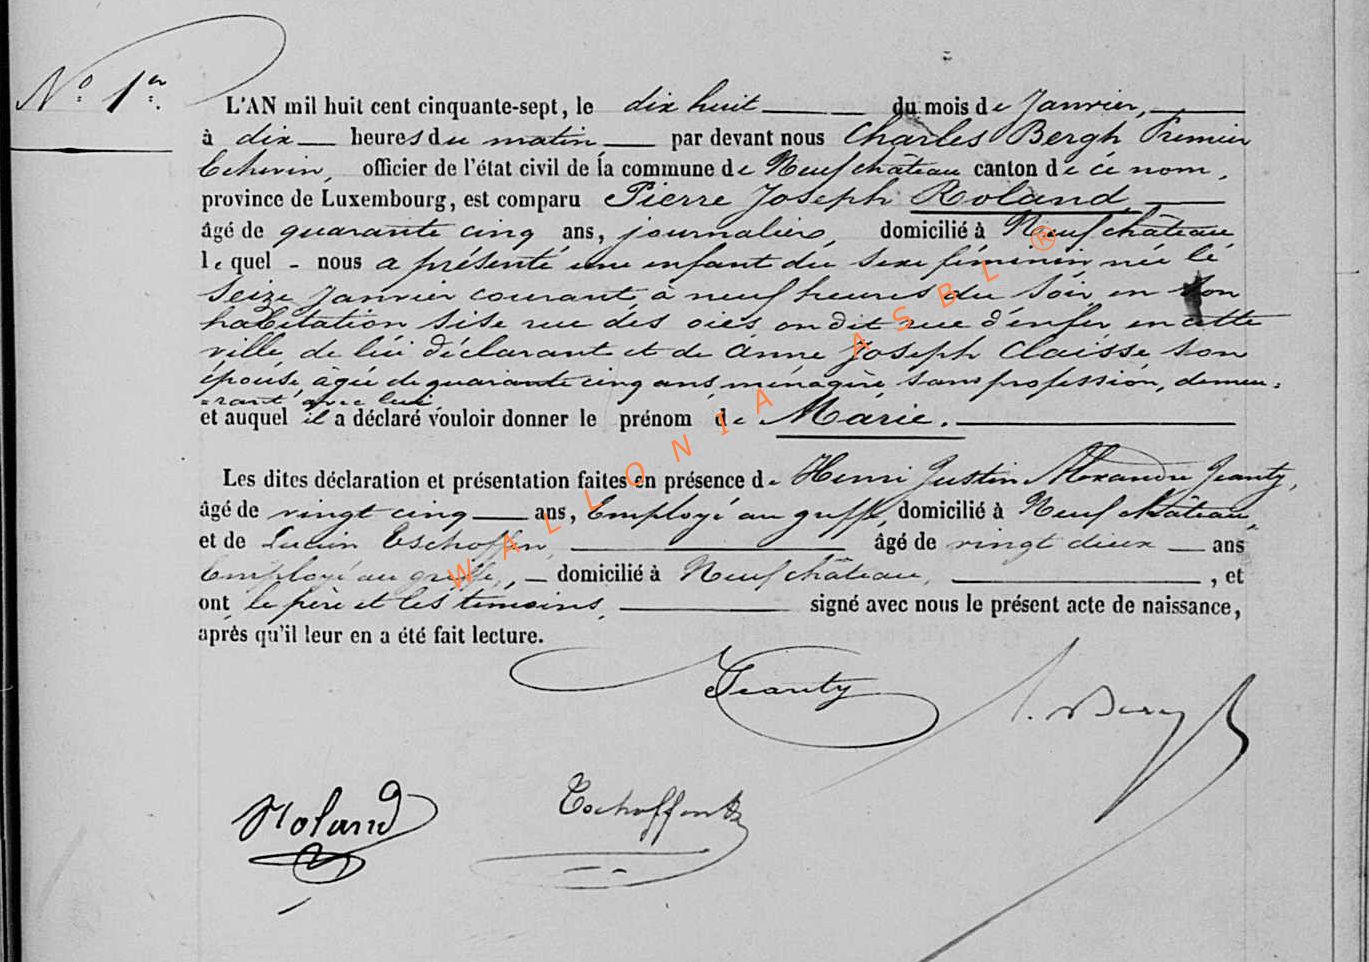 N° 1er.
L'AN mil huit cent cinquante-sept, le dix huit du mois de Janvier,
à dix heures du matin, par devant nous Charles Bergh Premier
Echevin, officier de l'état civil de la commune de Neufchâteau canton de ce nom,
province de Luxembourg, est comparu Pierre Joseph Roland,
âgé de quarante cinq ans, journalier, domicilié à Neufchâteau
lequel - nous a présenté une enfant du sexe féminin née le
seize Janvier courant à neuf heures du soir en son
habitation sise rue des oies ou dit rue d'enfer en cette
ville, de lui déclarant et de Anne Joseph Claisse son
épouse âgée de quarante cinq ans, ménagère sans profession, demeu=
=rant avec lui
et auquel il a déclaré vouloir donner le prénom de Marie.
Les dites déclaration et présentation faites en présence de Henri Justin Alexandre Jeanty,
âgé de vingt cinq ans, Employé au greffe, domicilié à Neufchâteau,
et de Lucien Tschoffen, âgé de vingt deux ans
Employé au greffe, domicilié à Neufchâteau, , et
ont le père et les témoins, signé avec nous le présent acte de naissance,
après qu'il leur en a été fait lecture.
Jeanty
Bergh
Roland
Tschoffen
WALLONIA ASBL ®